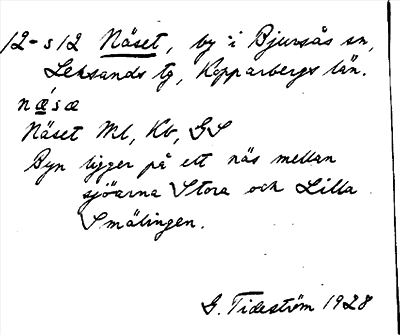 12-s12 Näset, by i Bjursås sn,
Leksands tg, Kopparbergs län.
næ´sæ
Näset Ml, Kb, GS
Byn ligger på ett näs mellan
sjöarna Stora och Lilla
Smälingen.
G. Tideström 1928